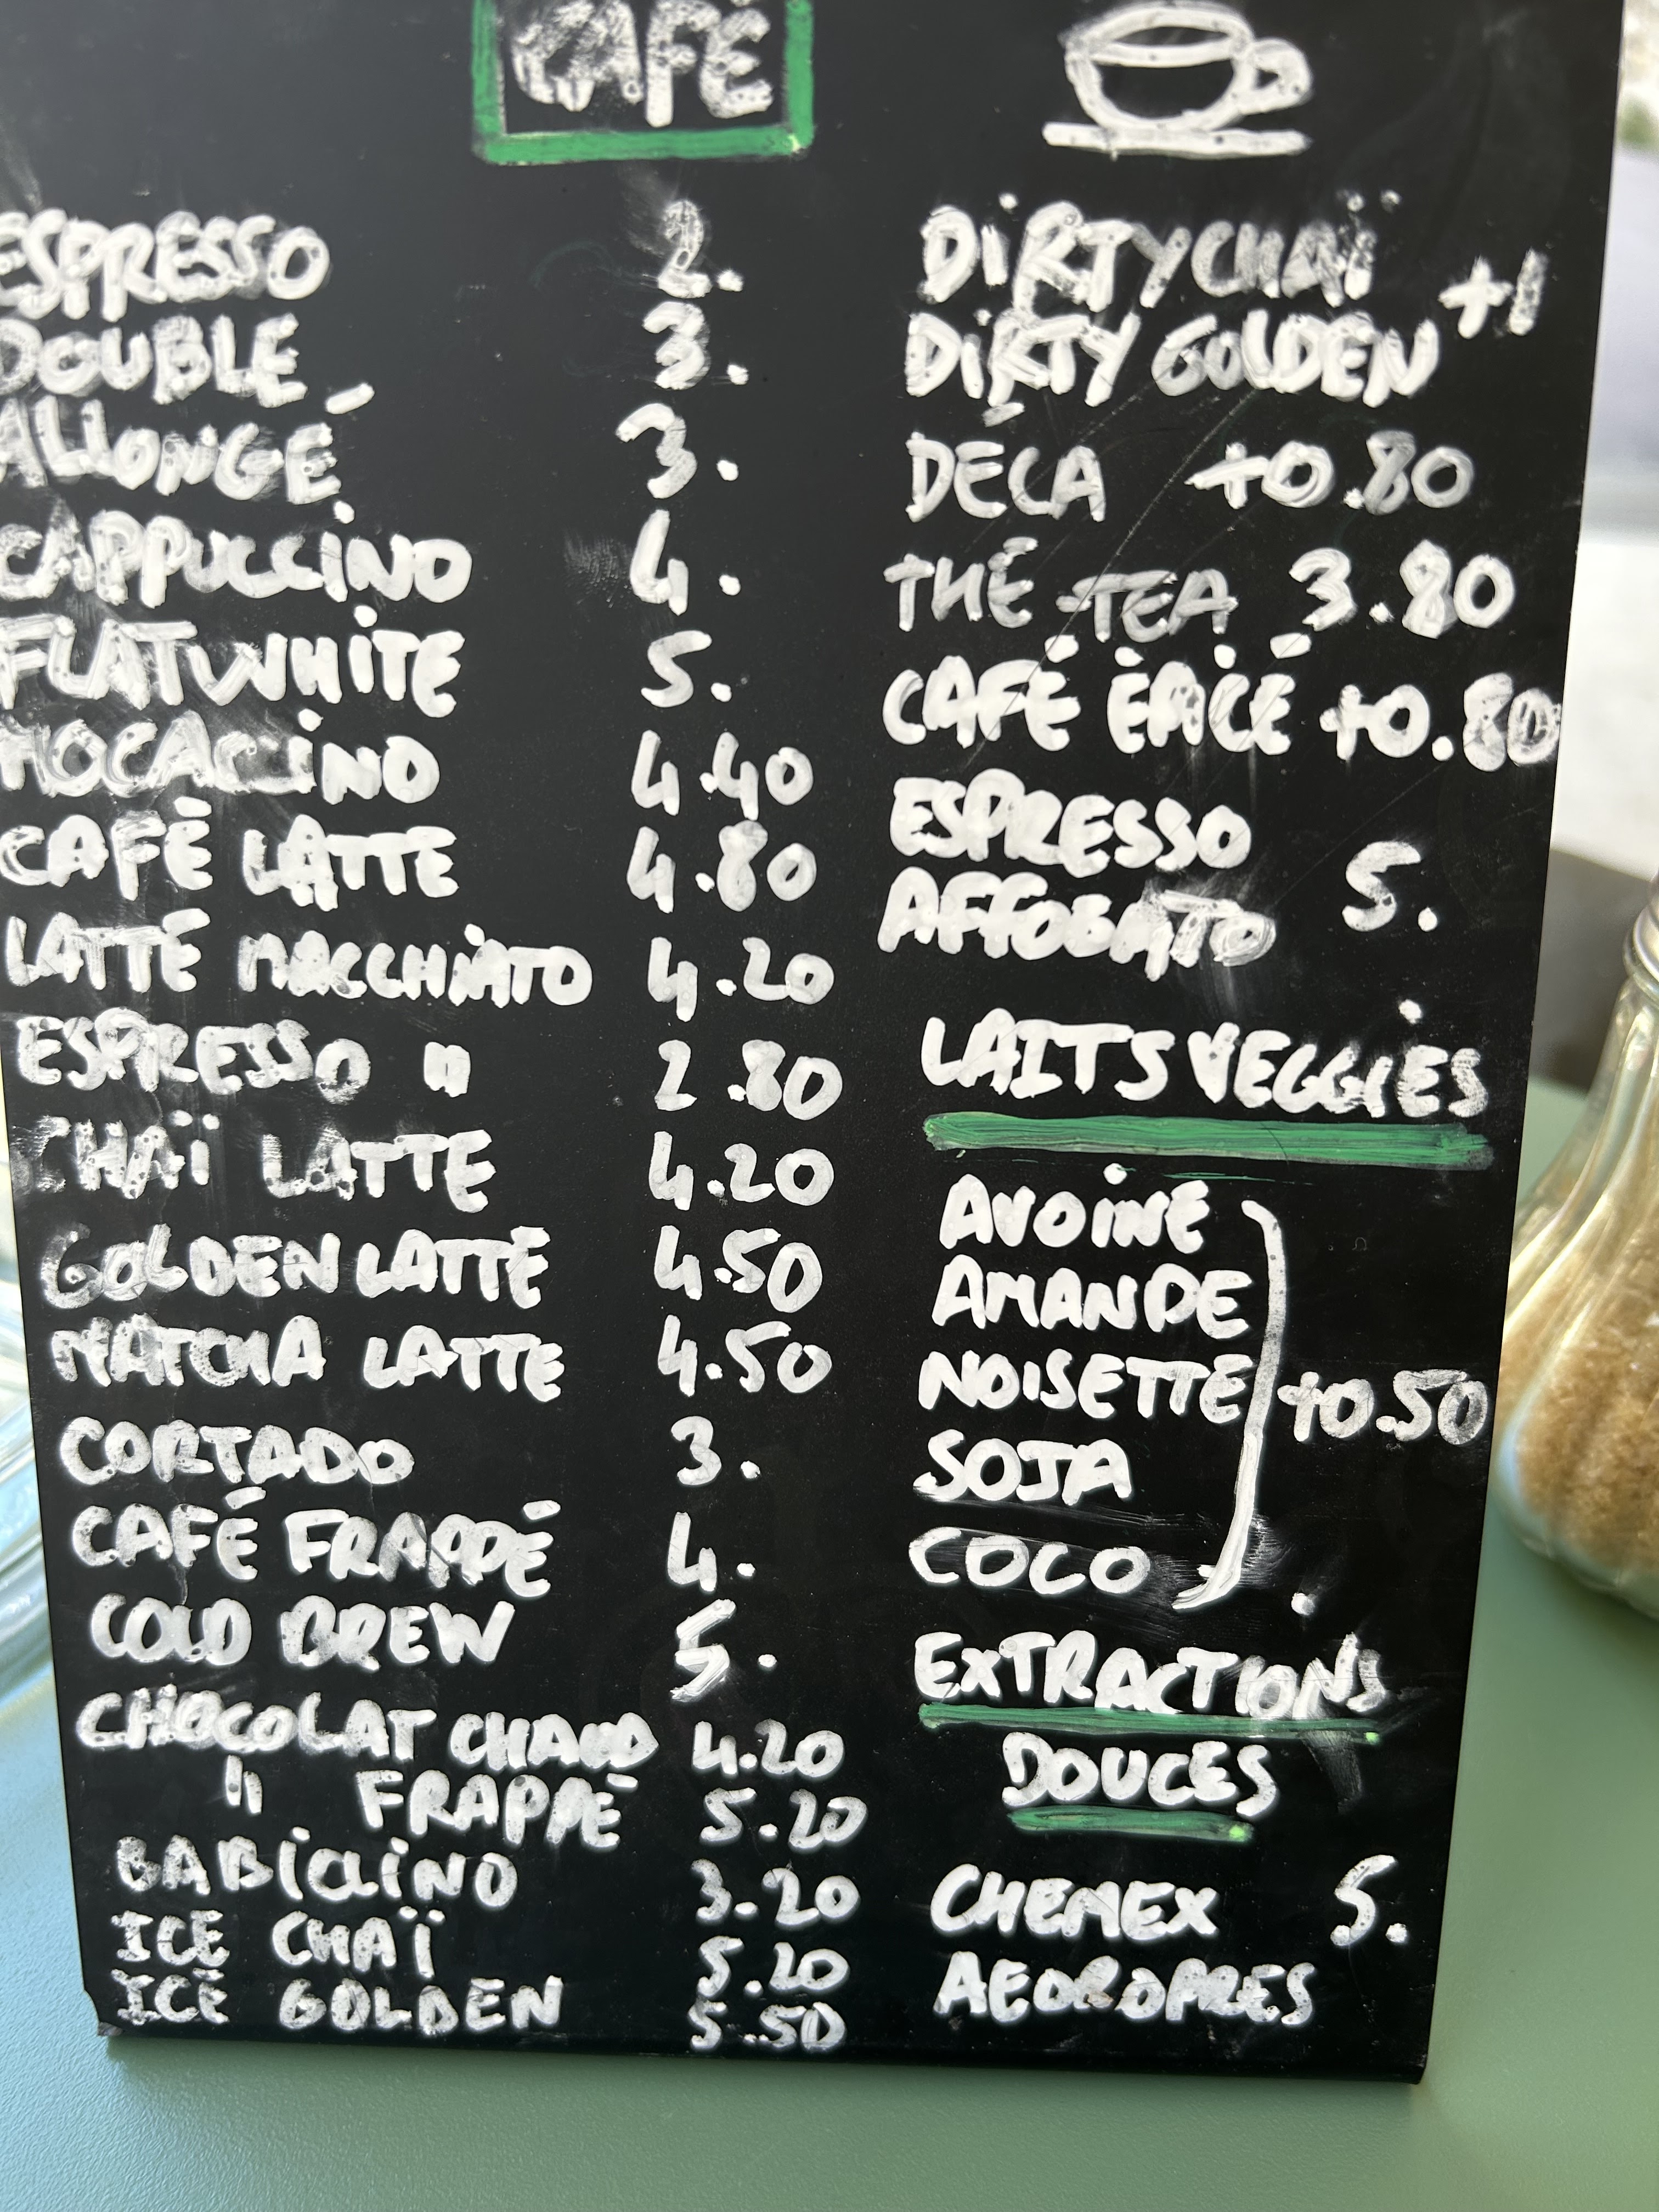 CAFÉ
ESPRESSO 2.
DOUBLE 3.
ALLONGÉ 3.
CAPPUCCINO 4.
FLATWHITE 5.
MOCACCINO 4.40
CAFÉ LATTE 4.80
LATTE MACCHIATO 4.20
ESPRESSO " 2.80
CHAÏ LATTE 4.20
GOLDEN LATTE 4.50
MATCHA LATTE 4.50
CORTADO 3.
CAFÉ FRAPPÉ 4.
COLD BREW 5.
CHOCOLAT CHAUD 4.20
" FRAPPÉ 5.20
BABICCINO 3.20
ICE CHAÏ 5.20
ICE GOLDEN 5.50
DIRTY CHAÏ +1
DIRTY GOLDEN
DÉCA +0.80
THÉ - TEA 3.80
CAFÉ ÉPICÉ +0.80
ESPRESSO
AFFOGATO 5.
LAITS VEGGIES
AVOINE
AMANDE
NOISETTE +0.50
SOJA
COCO
EXTRACTIONS
DOUCES
CHEMEX 5.
AEOROPRES